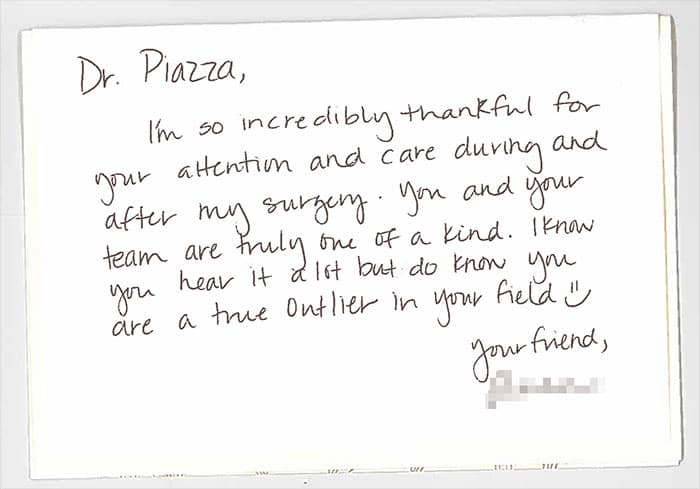 Dr. Piazza,
I'm so incredibly thankful for
your attention and care during and
after my surgery. You and your
team are truly one of a kind. I know
you hear it a lot but do know you
are a true Outlier in your field :)
Your friend,